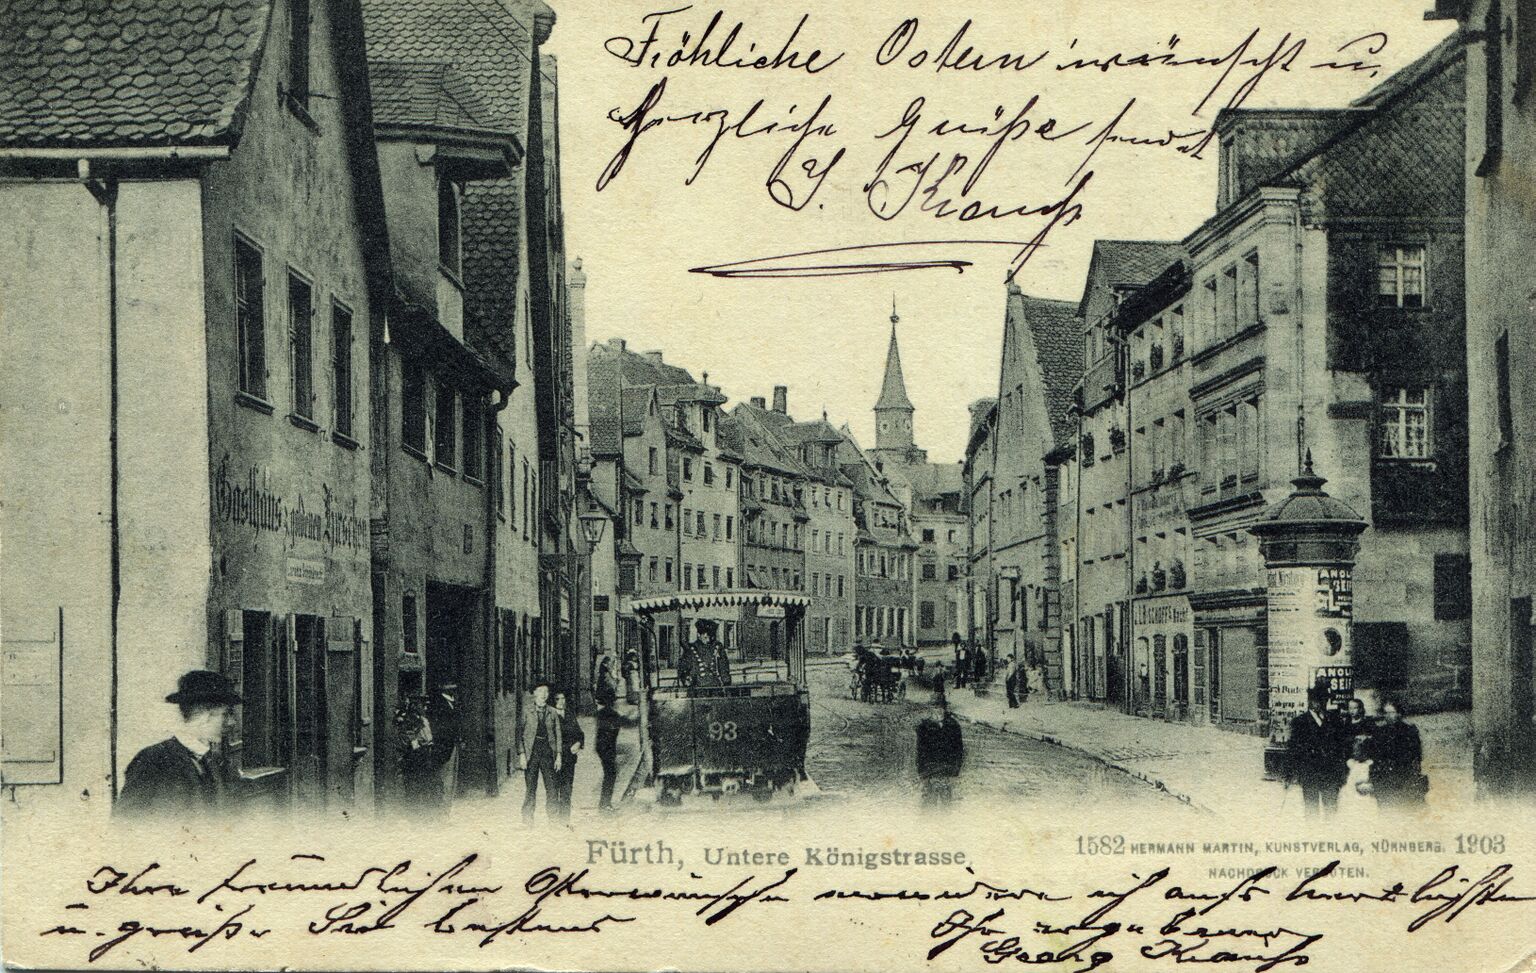 Fröhliche Ostern wünscht u.
herzliche Grüße sendet
J. Krauß
Gasthaus z. goldenen Hirschen
93
ANOL
SEI
ANOL
SEI
Fürth, Untere Königstrasse.
1582 HERMANN MARTIN, KUNSTVERLAG, NÜRNBERG. 1903
NACHDRUCK VERBOTEN.
Ihre freundlichen Osterwünsche erwidere ich aufs herzlichste
u. grüße Sie bestens
Ihr ergebener
Georg Krauß